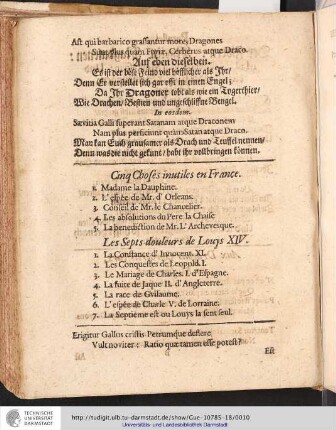 Ast qui barbarico grassantur more, Dragones
Sunt plus quam Furiæ, Cerberus atque Draco.
Auf eben dieselben.
Es ist der böse Feind viel höfflicher als Ihr/
Denn Er verstellet sich gar offt in einen Engel;
Da Ihr Dragoner tobt als wie ein Tygerthier/
Wie Drachen/ Bestien und ungeschliffne Bengel.
In eosdem.
Sævitia Galli superant Satanam atque Draconem
Nam plus perficiunt quam Satan atque Draco.
Man kan Euch grausamer als Drach und Teuffel nennen/
Denn was die nicht gekunt/ habt ihr vollbringen können.
Cinq Choses inutiles en France.
1. Madame la Dauphine.
2. L'espée de Mr. d'Orleans.
3. Conseil de Mr. le Chancelier.
4. Les absolutions du Pere la Chaise
5. La benediction de Mr. L'Archevesque.
Les Septs douleurs de Louys XIV.
1. La Constance d'Innocent. XI.
2. Les Conquestes de Leopold. I.
3. Le Mariage de Charles. I. d'Espagne.
4. La fuite de Jaque II. d'Angleterre.
5. La race de Guilaume.
6. L'espée de Charle V. de Lorraine.
7. La Septième est ou Louys la sent seul.
Erigitur Gallus cristis Petrumque deflere
Vult noviter: Ratio quæ tamen esse potest?
B
Est
TECHNISCHE
UNIVERSITÄT
DARMSTADT
http://tudigit.ulb.tu-darmstadt.de/show/Gue-10785-18/0010
Universitäts- und Landesbibliothek Darmstadt